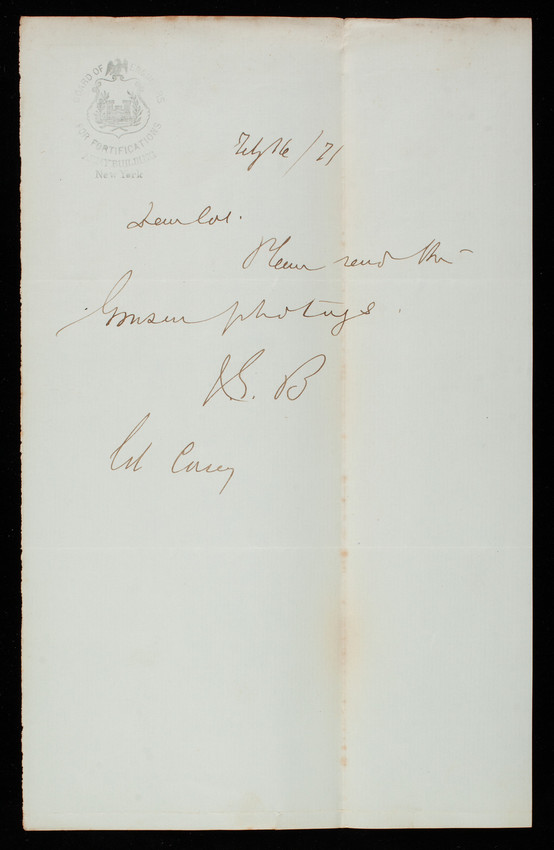 BOARD OF ENGINEERS
FOR FORTIFICATIONS
ARMY BUILDING
New York
Feby 16/71
Dear Col.
Please send the
Gruson photogs.
J.G. B
Col Casey